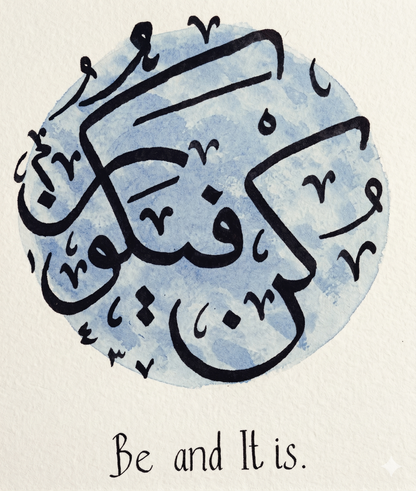 كن فيكون
Be and It is.